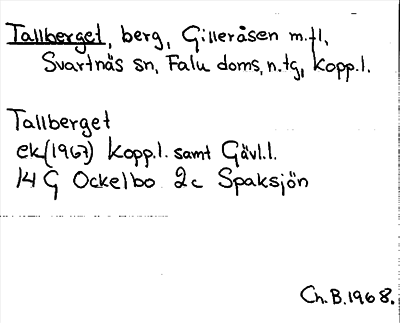 Tallberget, berg, Gilleråsen m.fl,
Svartnäs sn, Falu doms.n.tg, Kopp.l.
Tallberget
ek(1967) Kopp.l. samt Gävl.l.
14 G Ockelbo 2c Spaksjön
Ch.B.1968.